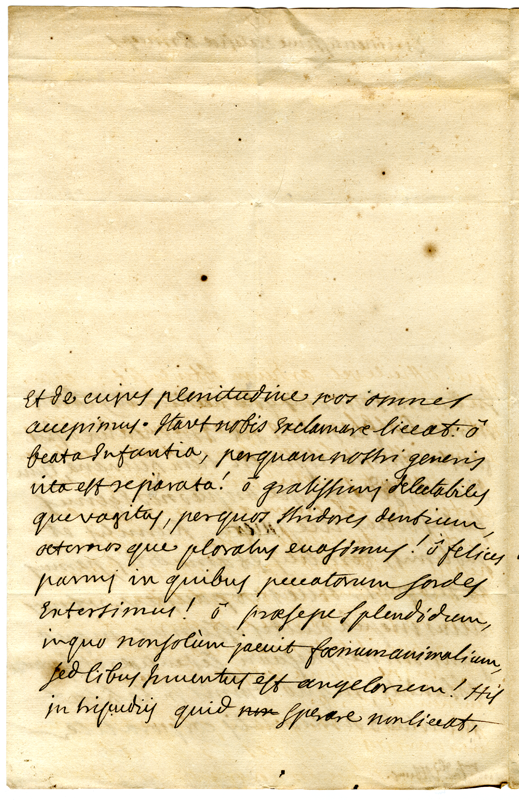 Et de cujus plenitudine nos omnes
accepimus. Hinc nobis exclamare liceat: ô
beata Infantia, per quam nostri generis
vita est reparata! ô gratissimi, delectabiles
que vagitus, per quos stridores dentium,
æternos que ploratus evasimus! ô felices
panni in quibus peccatorum sordes
extersimus! ô præsepe splendidum,
in quo non solùm jacuit fœnum animalium,
sed cibus inventus est angelorum! His
in tripudiis quid non sperare non liceat,